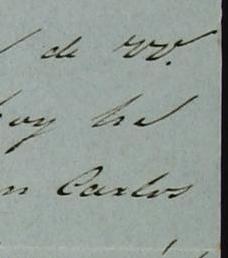 de VV.
hoy he
n Carlos